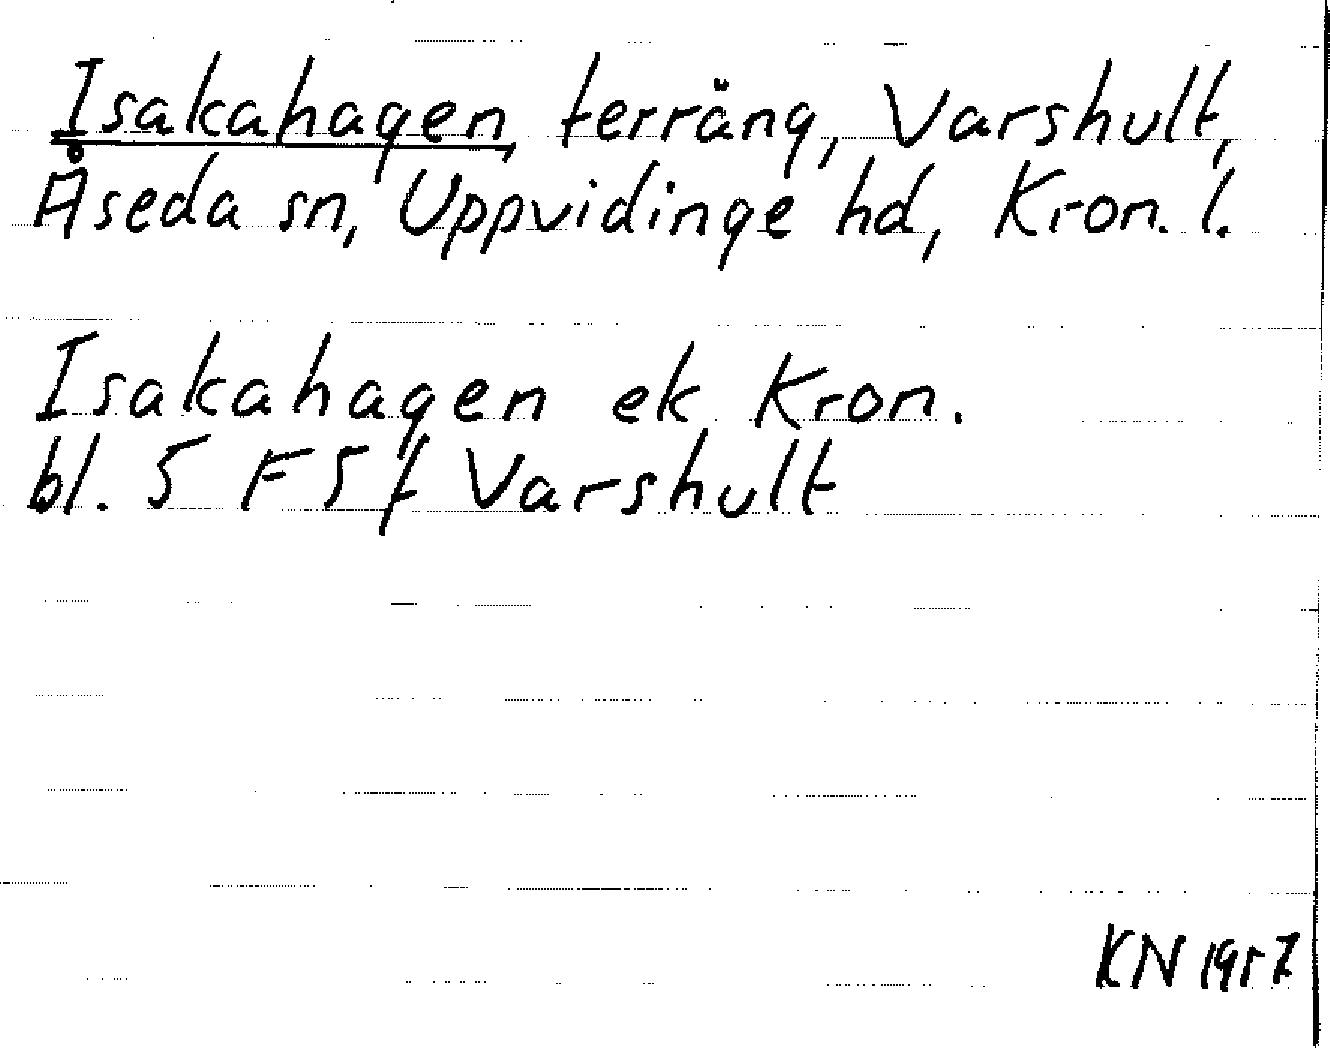 Isakahagen, terräng, Varshult,
Åseda sn, Uppvidinge hd, Kron. l.
Isakahagen ek Kron.
bl. 5 F 5 f Varshult
KN 1957